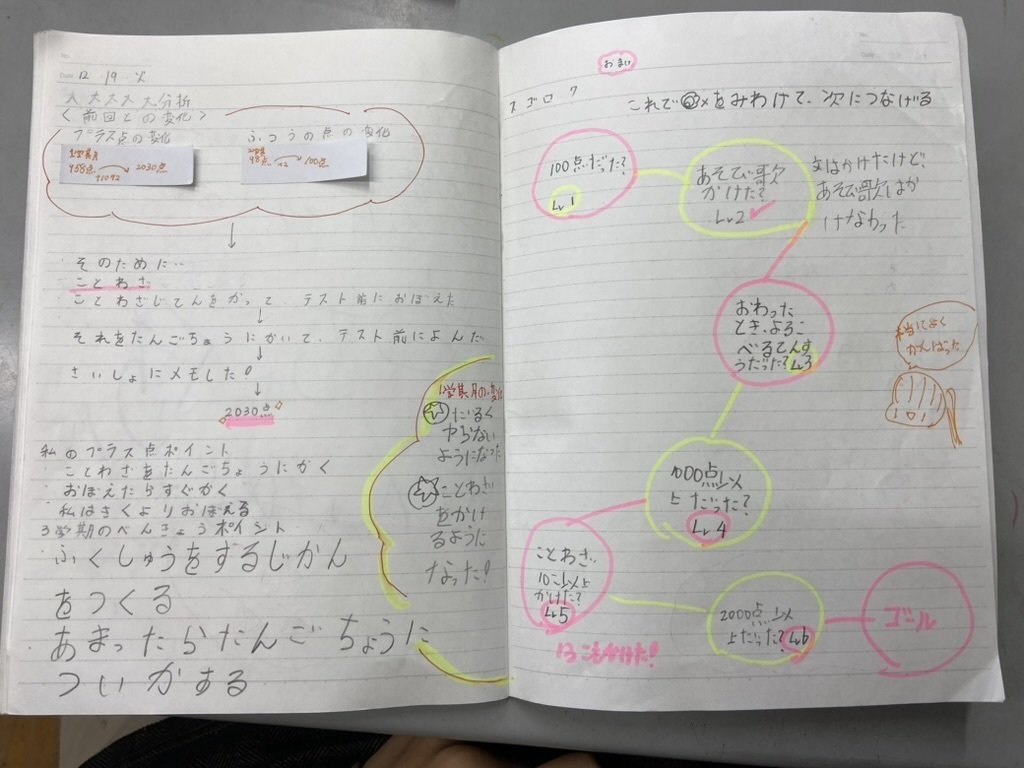 No.
Date 12・19・火
大大大大大分析
〈前回との変化〉
プラス点の変化
ふつうの点の変化
958点 → 2030点
+1072
98点 → 100点
+2
↓
そのために…
ことわざ
ことわざじてんをかって、テスト前におぼえた
↓
それをたんごちょうにかいて、テスト前によんだ
↓
さいしょにメモした!
↓
2030点
私のプラス点ポイント
ことわざをたんごちょうにかく
おぼえたらすぐかく
私はさくよりおぼえる
3学期のべんきょうポイント
ふくしゅうをするじかん
をつくる
あまったらたんごちょうに
ついかする
だるく
やらない
ようになった
ことわざ
をかけ
るように
なった!
No.
Date
おまけ
スゴロク
これで◎×をみわけて、次につなげる
100点だった?
Lv1
あそび歌
かけた?
Lv2
文はかけたけど、
あそび歌はか
けなかった
おわった
とき、よろこ
べるてんす
うだった?Lv3
本当によく
がんばった
1000点以
上だった?
Lv4
ことわざ
10こ以上
かけた?
Lv5
13こもかけた!
2000点以
上だった?Lv6
ゴール